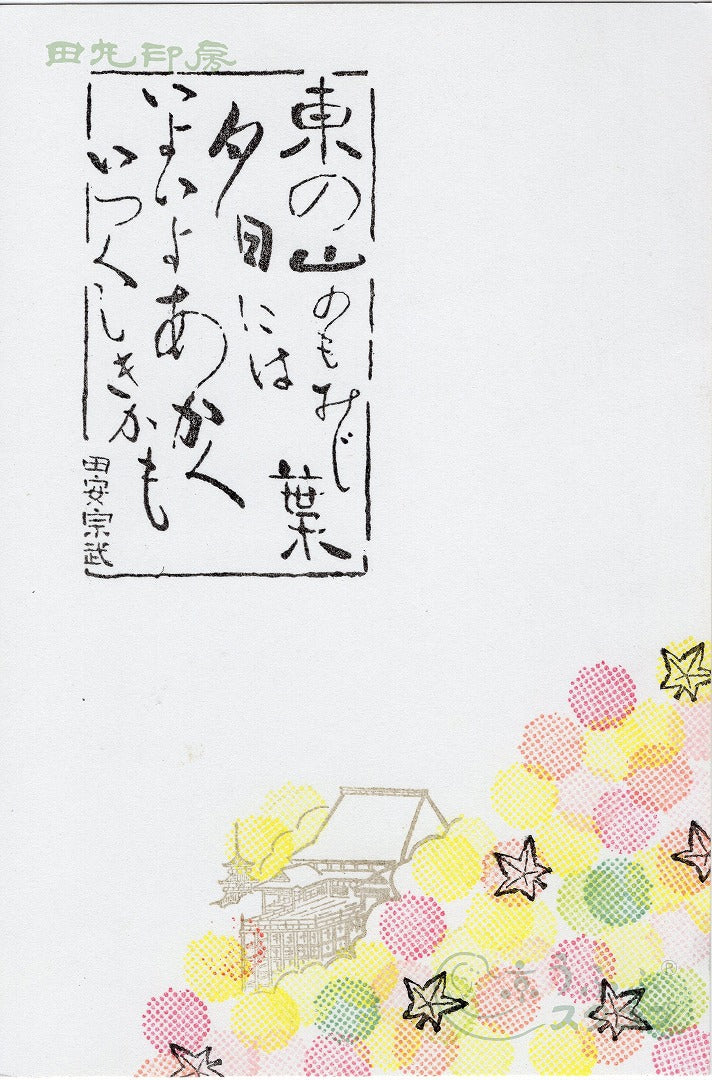 田丸印房
東の山のもみじ葉
夕日には
いよいよあかく
いつくしきかも
田安宗武